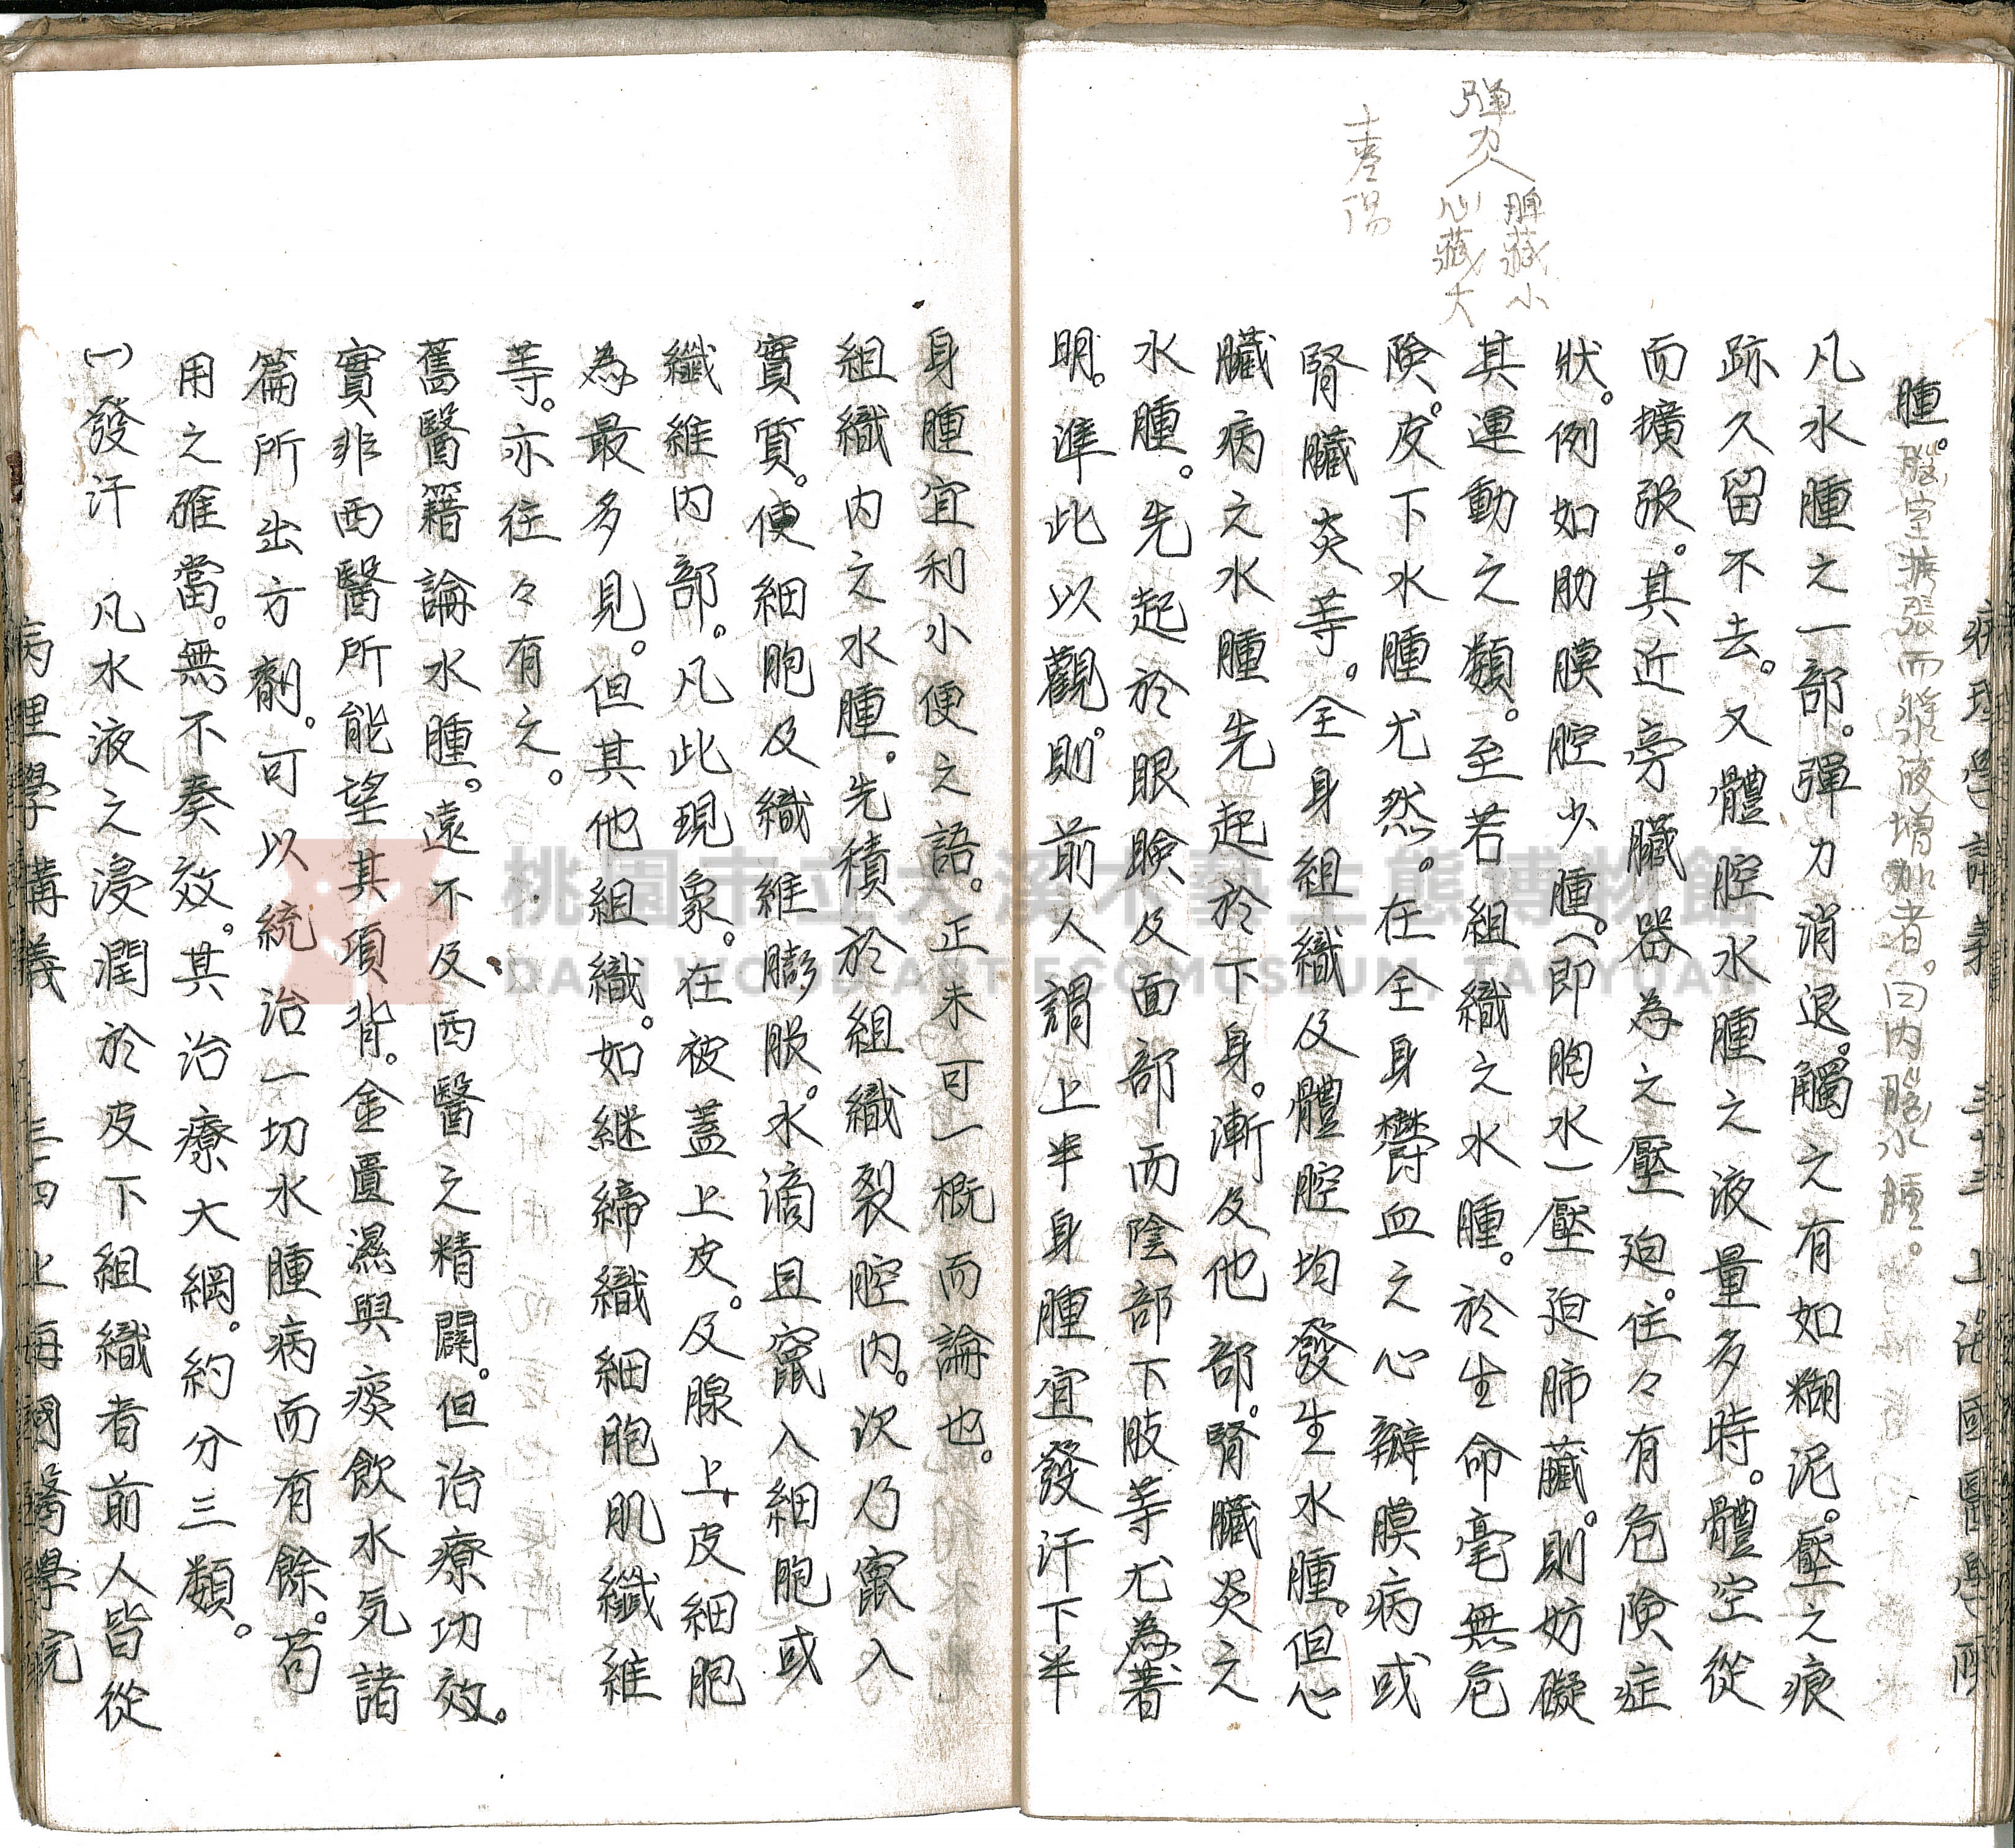 病理學講義 三十三 上海國醫學院
彈力
脾藏小
心藏大
陽
腫。腦室擴張而漿液增加者。曰內腦水腫。
凡水腫之一部。彈力消退。觸之有如糊泥。壓之痕
跡久留不去。又體腔水腫之液量多時。體空從
而擴張。其近旁臟器為之壓迫。往々有危險症
狀。例如肋膜腔少腫。(即胸水)壓迫肺臟。則妨礙
其運動之類。至若組織之水腫。於生命毫無危
險。皮下水腫尤然。在全身鬱血之心瓣膜病或
腎臟炎等。全身組織及體腔均發生水腫。但心
臟病之水腫先起於下身。漸及他部。腎臟炎之
水腫。先起於眼瞼及面部而陰部下肢等尤為著
明。準此以觀。則前人謂上半身腫宜發汗下半
身腫宜利小便之語。正未可一概而論也。
組織內之水腫。先積於組織裂腔內。次乃竄入
實質。使細胞及織維膨脹。水滴且竄入細胞或
纖維內部。凡此現象。在被蓋上皮。及腺上皮細胞
為最多見。但其他組織。如継締織細胞肌纖維
等。亦往々有之。
舊醫籍論水腫。遠不及西醫之精闢。但治療功效。
實非西醫所能望其項背。金匱濕與痰飲水気諸
篇所出方劑。可以統治一切水腫病而有餘。苟
用之確當。無不奏效。其治療大綱。約分三類。
(一)發汗 凡水液之浸潤於皮下組織者前人皆從
病理學講義 三四 上海國醫學院
桃園市立大溪木藝生態博物館
DAXI WOOD ART ECOMUSEUM, TAOYUAN